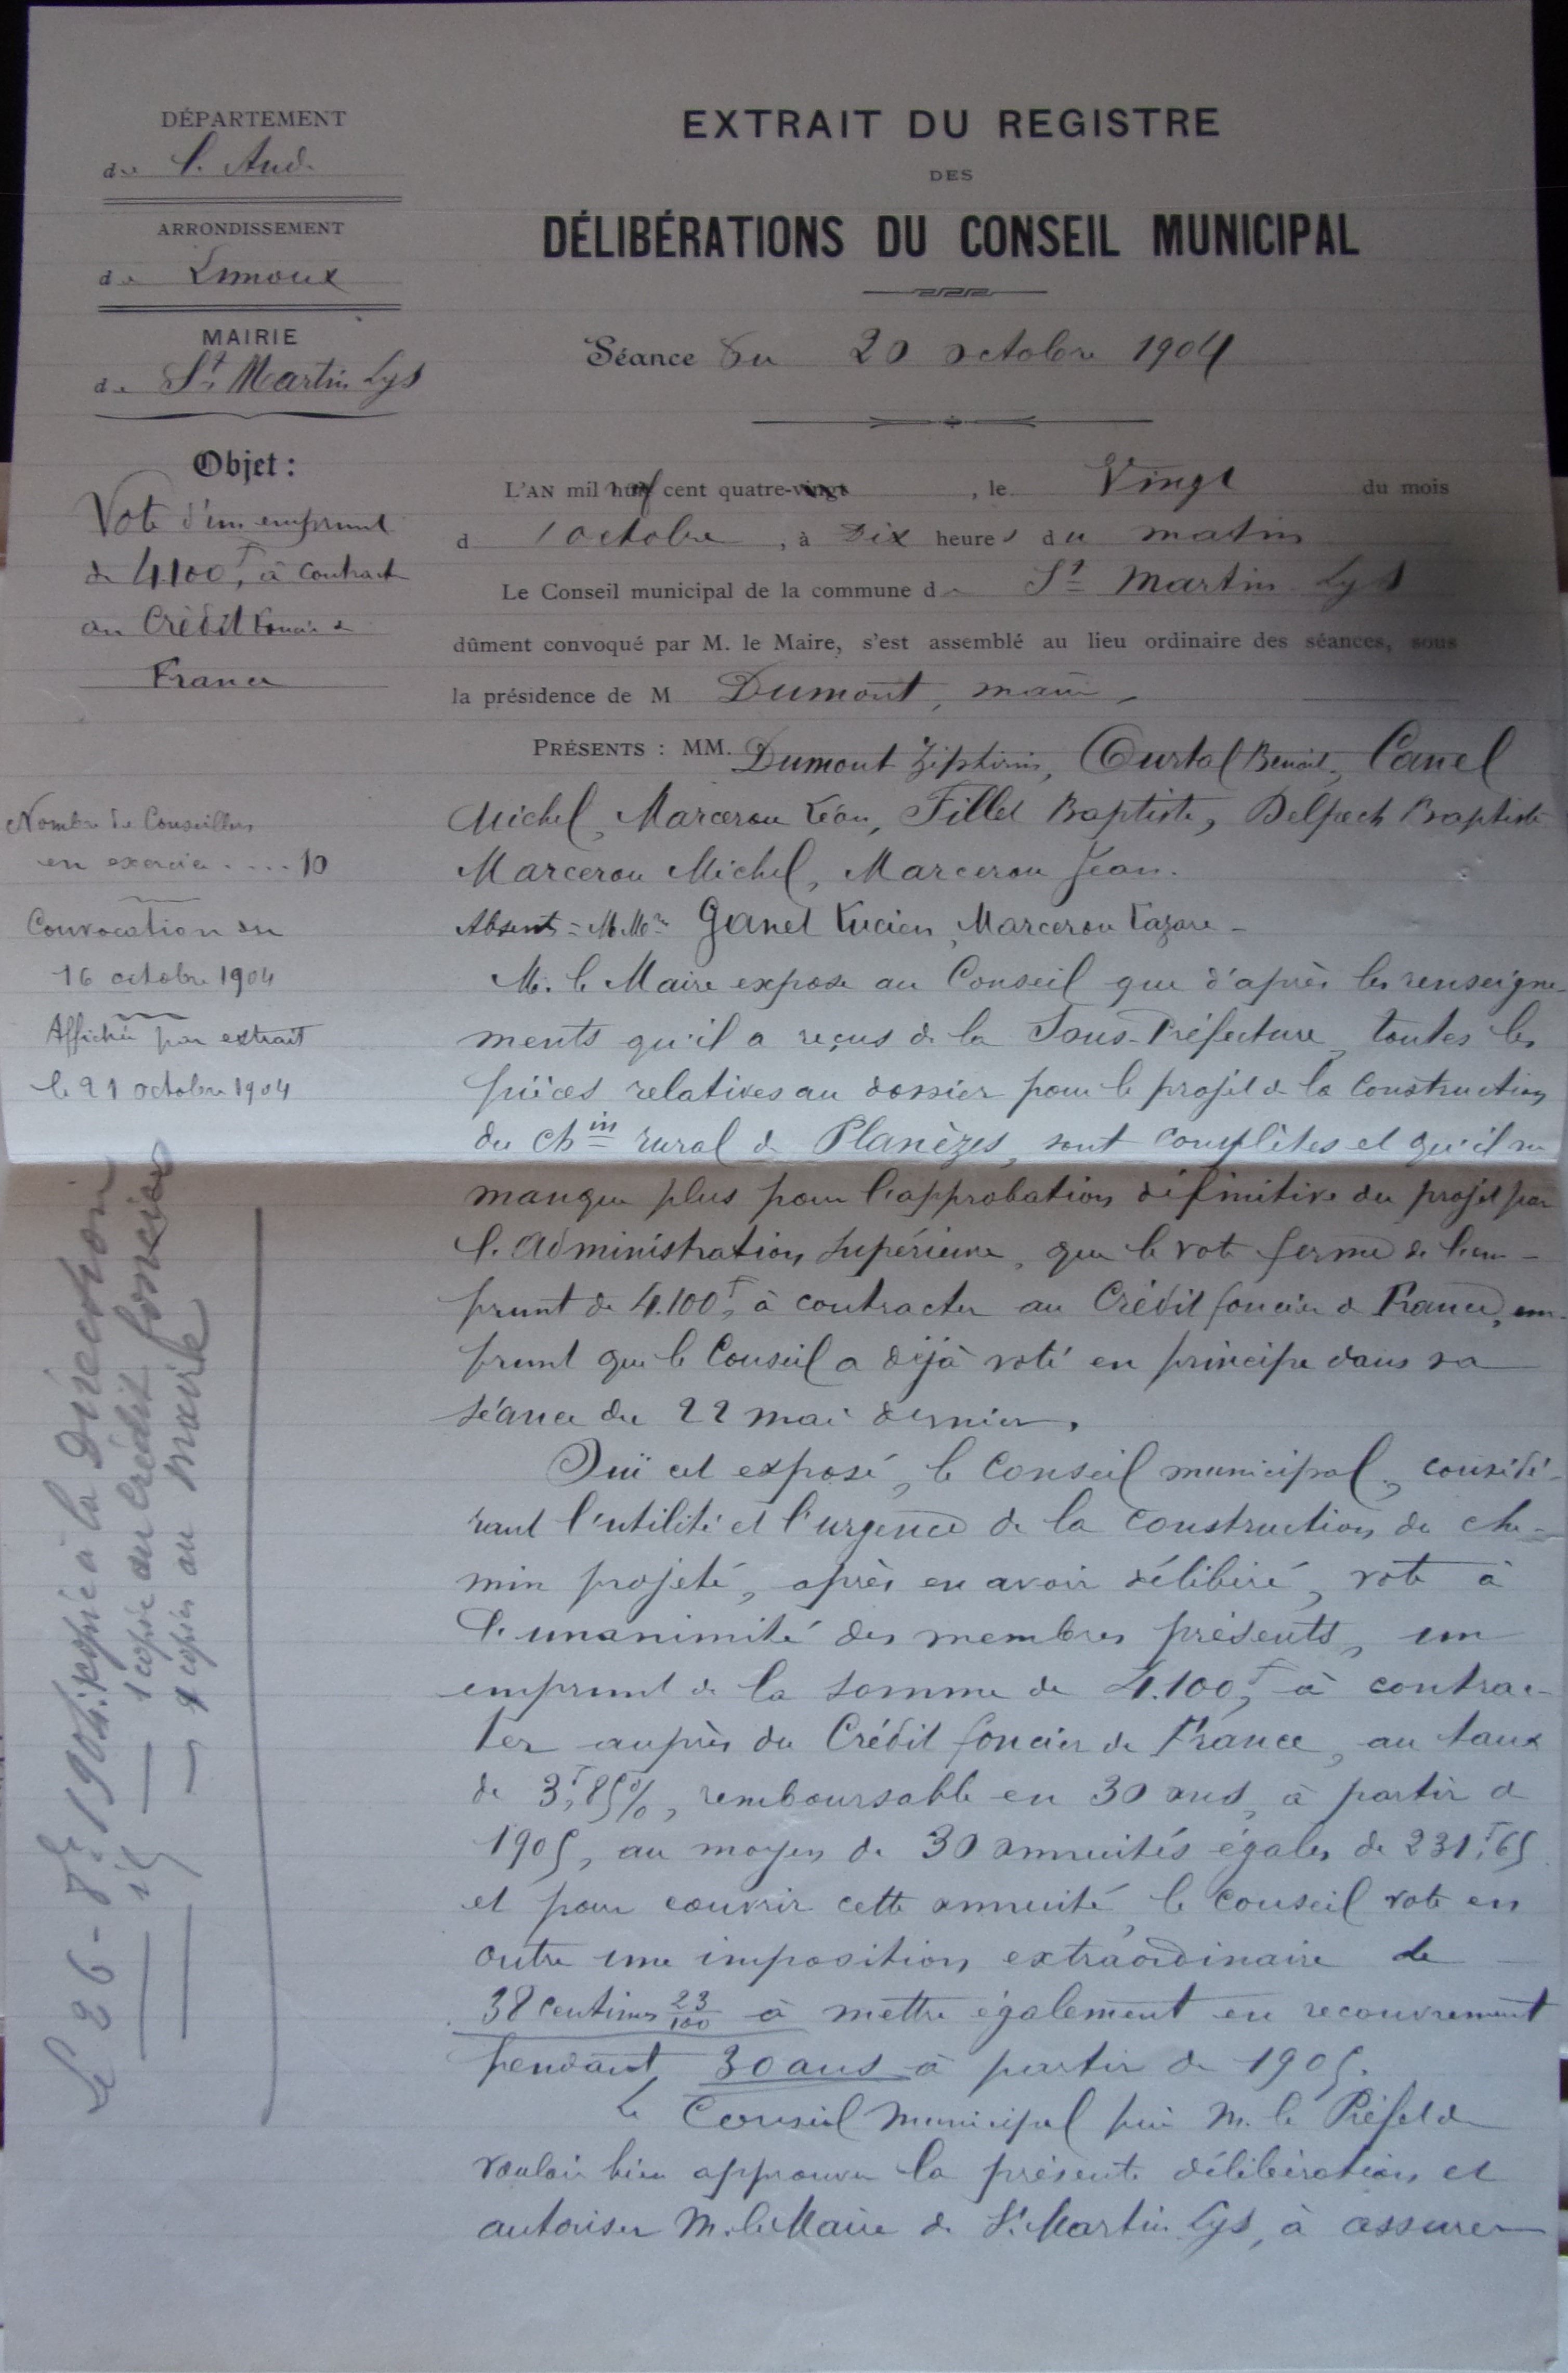 DÉPARTEMENT
de l'Aude
ARRONDISSEMENT
de Limoux
MAIRIE
de St Martin Lys
Objet :
Vote d'un emprunt
de 4100f, à contracter
au Crédit foncier de
France
Nombre de Conseillers
en exercice .... 10
Convocation du
16 octobre 1904
Affichée par extrait
le 21 octobre 1904
Le 26 - 8bre 1904. 1 copie à la Direction
id — 1 copie au Crédit foncier
— — copies au maire
EXTRAIT DU REGISTRE
DES
DÉLIBÉRATIONS DU CONSEIL MUNICIPAL
Séance du 20 octobre 1904
L'AN mil neuf cent quatre-vingt , le Vingt du mois
d'octobre , à Dix heures du matin
Le Conseil municipal de la commune de St Martin Lys
dûment convoqué par M. le Maire, s'est assemblé au lieu ordinaire des séances, sous
la présidence de M Dumont, maire,
PRÉSENTS : MM. Dumont , Courtal Benoit, Canel
Michel, Marcerou Léon, Fillet Baptiste, Delpech Baptiste
Marcerou Michel, Marcerou Jean.
Absents = M. Mrs Ganel Lucien, Marcerou Lazare -
M. le Maire expose au Conseil que d'après les renseigne-
ments qu'il a reçus de la Sous-Préfecture, toutes les
pièces relatives au dossier pour le projet de la construction
du chin rural de Planèzes, sont complètes et qu'il ne
manque plus pour l'approbation définitive du projet par
l'Administration supérieure, que le vote ferme de l'em-
prunt de 4.100f, à contracter au Crédit foncier de France, em-
prunt que le Conseil a déjà voté en principe dans sa
séance du 22 mai dernier.
Ouï cet exposé, le Conseil municipal, considé-
rant l'utilité et l'urgence de la construction du che-
min projeté, après en avoir délibéré, vote à
l'unanimité des membres présents, un
emprunt de la somme de 4.100f, à contrac-
ter auprès du Crédit foncier de France, au taux
de 3f,85%, remboursable en 30 ans, à partir de
1905, au moyen de 30 annuités égales de 231f,65
et pour couvrir cette annuité, le conseil vote en
outre une imposition extraordinaire de
38 centimes 23/100 à mettre également en recouvrement
pendant 30 ans à partir de 1905.
Le Conseil municipal prie M. le Préfet de
vouloir bien approuver la présente délibération et
autoriser M. le Maire de St Martin Lys, à assurer